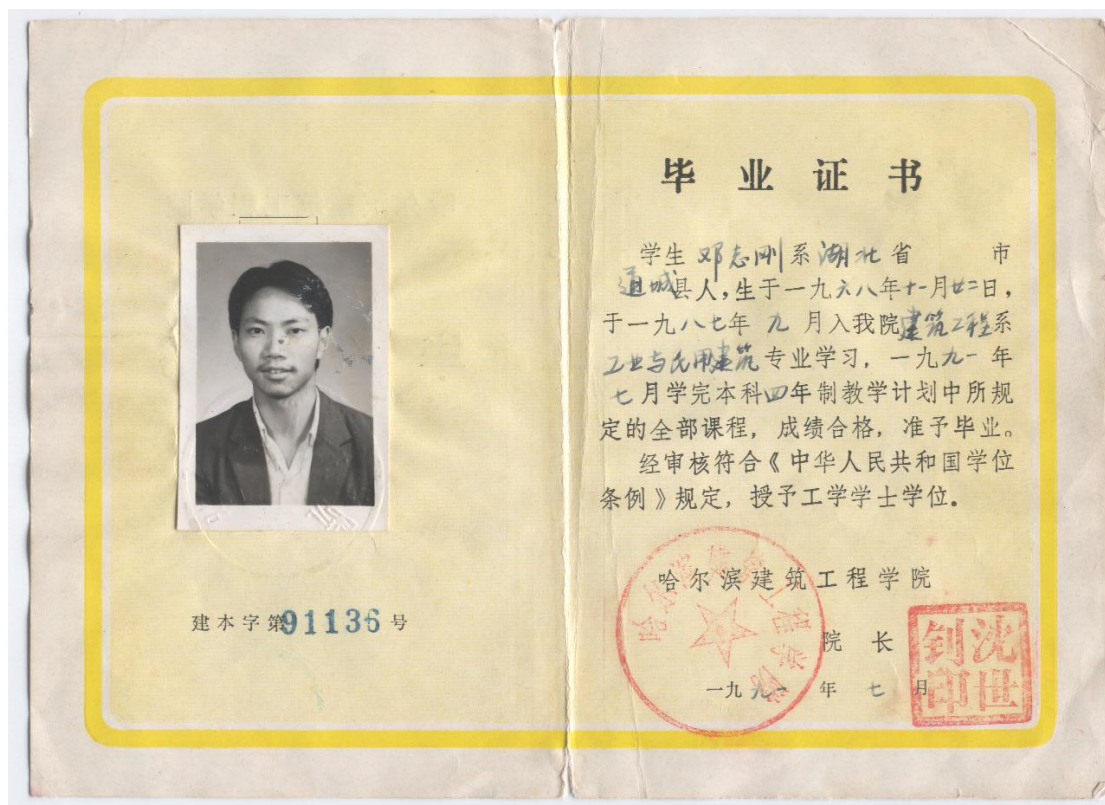 建本字第91136号
毕业证书
学生邓志刚系湖北省 市
通城县人,生于一九六八年十一月廿二日,
于一九八七年九月入我院建筑工程系
工业与民用建筑专业学习,一九九一年
七月学完本科四年制教学计划中所规
定的全部课程,成绩合格,准予毕业。
经审核符合《中华人民共和国学位
条例》规定,授予工学学士学位。
哈尔滨建筑工程学院
院长
沈世钊印
一九九一年七月
哈尔滨建筑工程学院